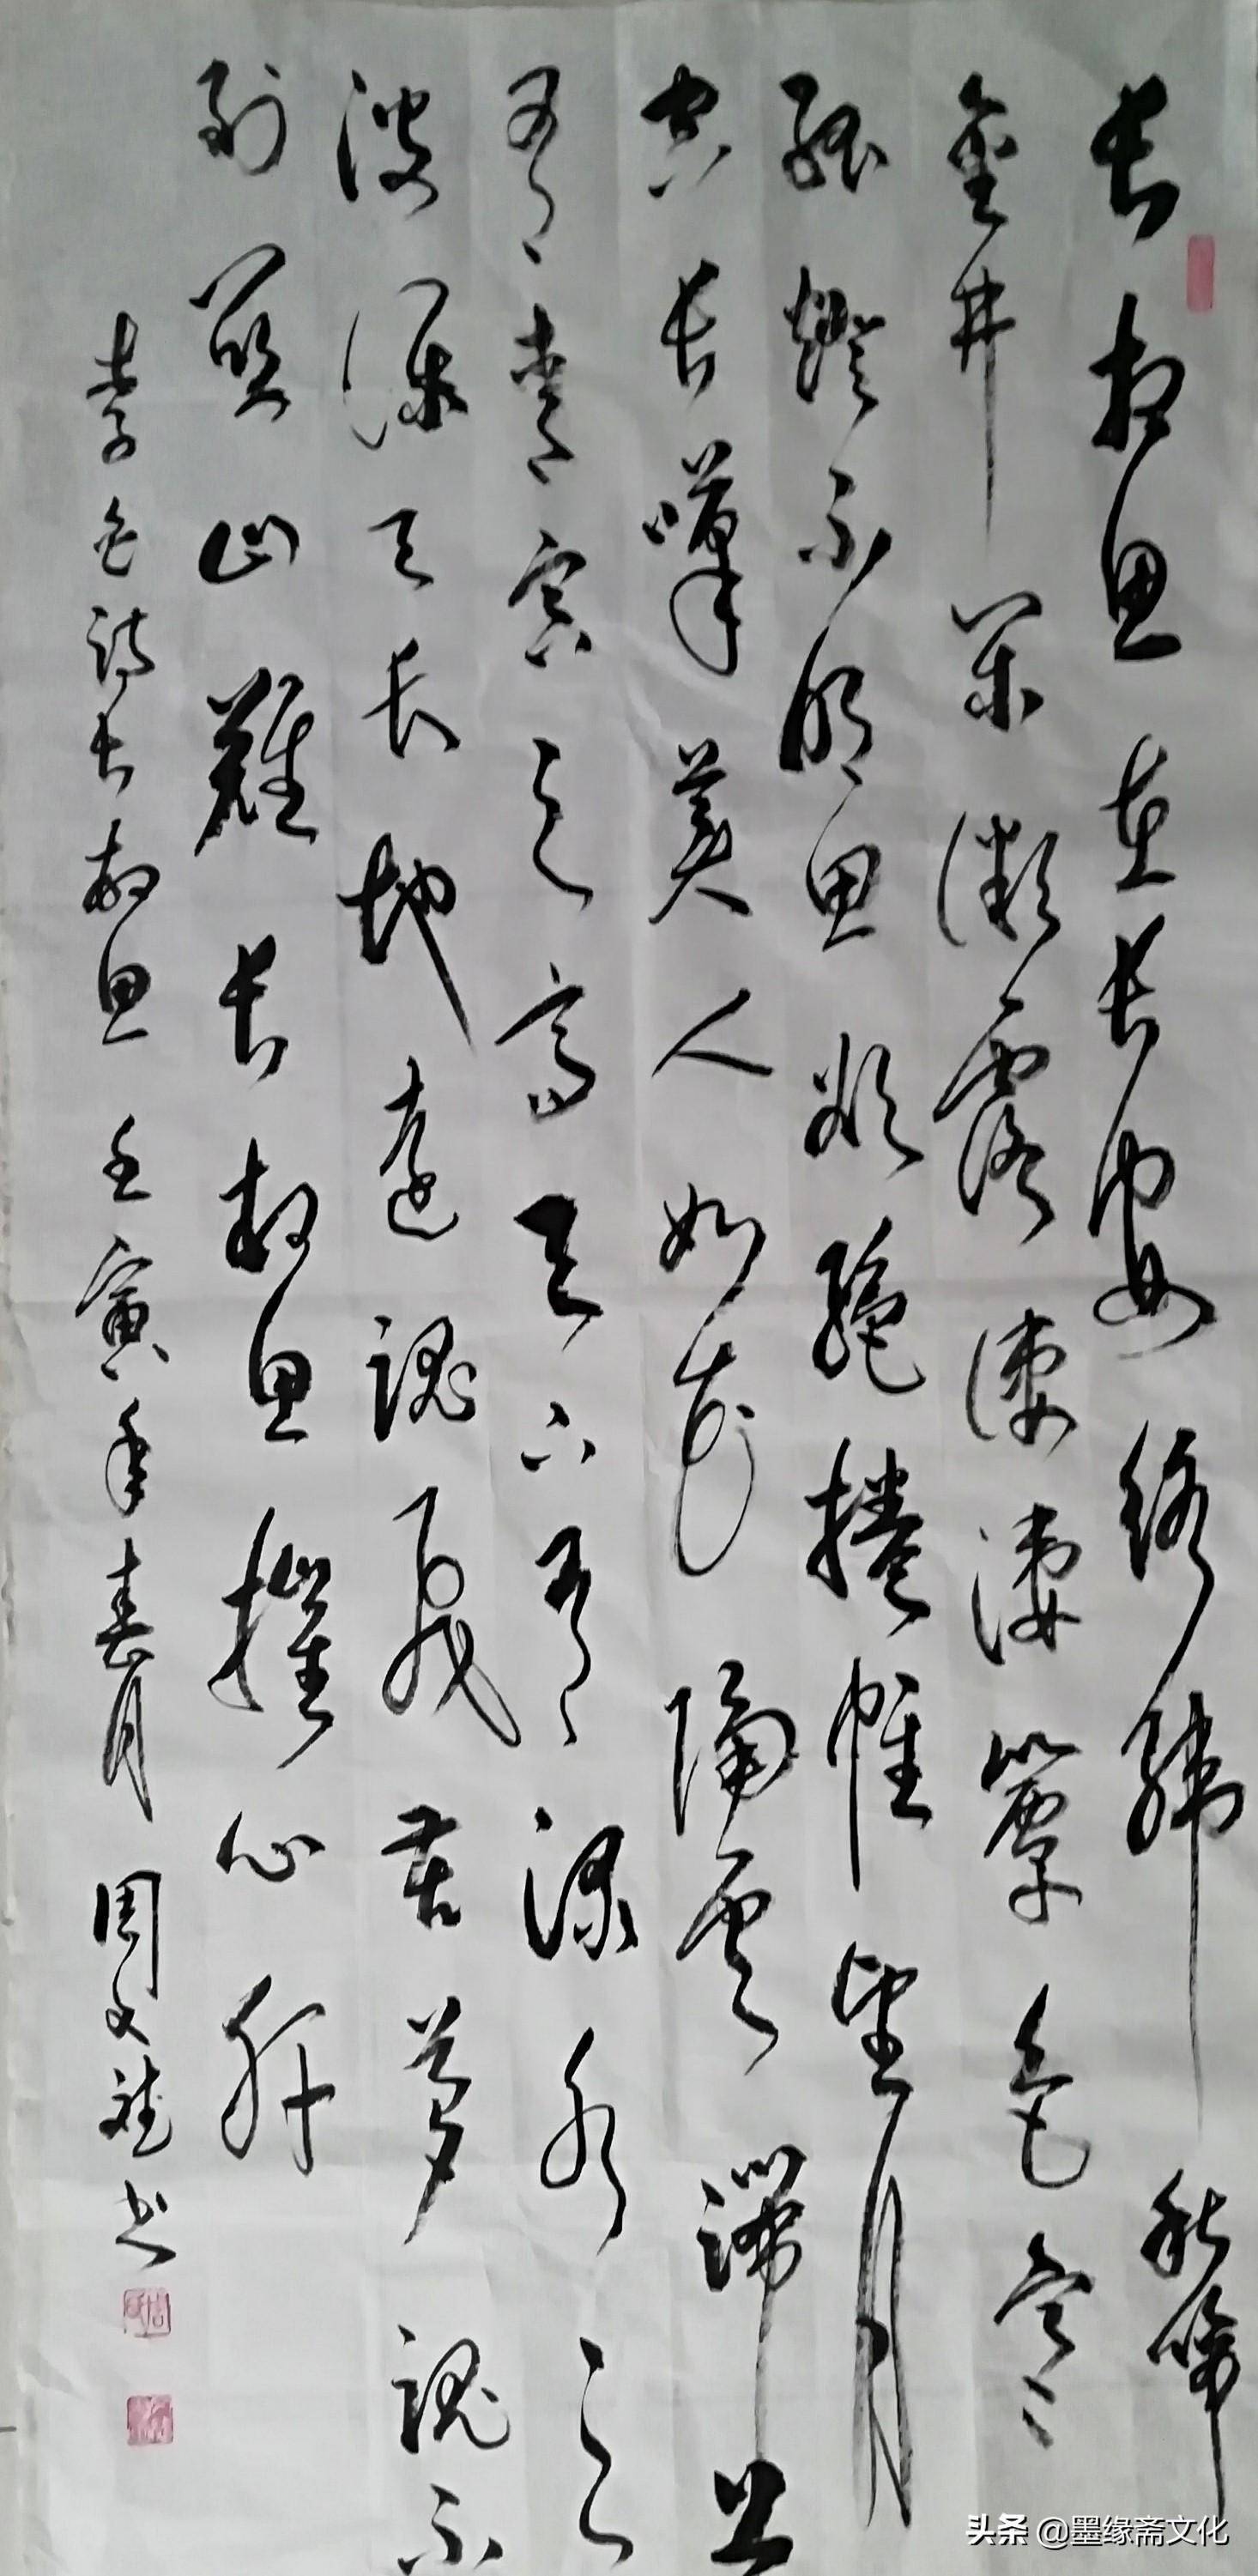 长相思在长安络纬秋啼
金井阑微霜凄凄簟色寒
孤燈不明思欲絶捲帷望月
空长嘆美人如花隔雲端上
有青冥之高天下有渌水之
波澜天长地遠魂飛苦夢魂不
到關山難长相思摧心肝
李白诗长相思 壬寅年春月 周文斌书
头条 @墨缘斋文化